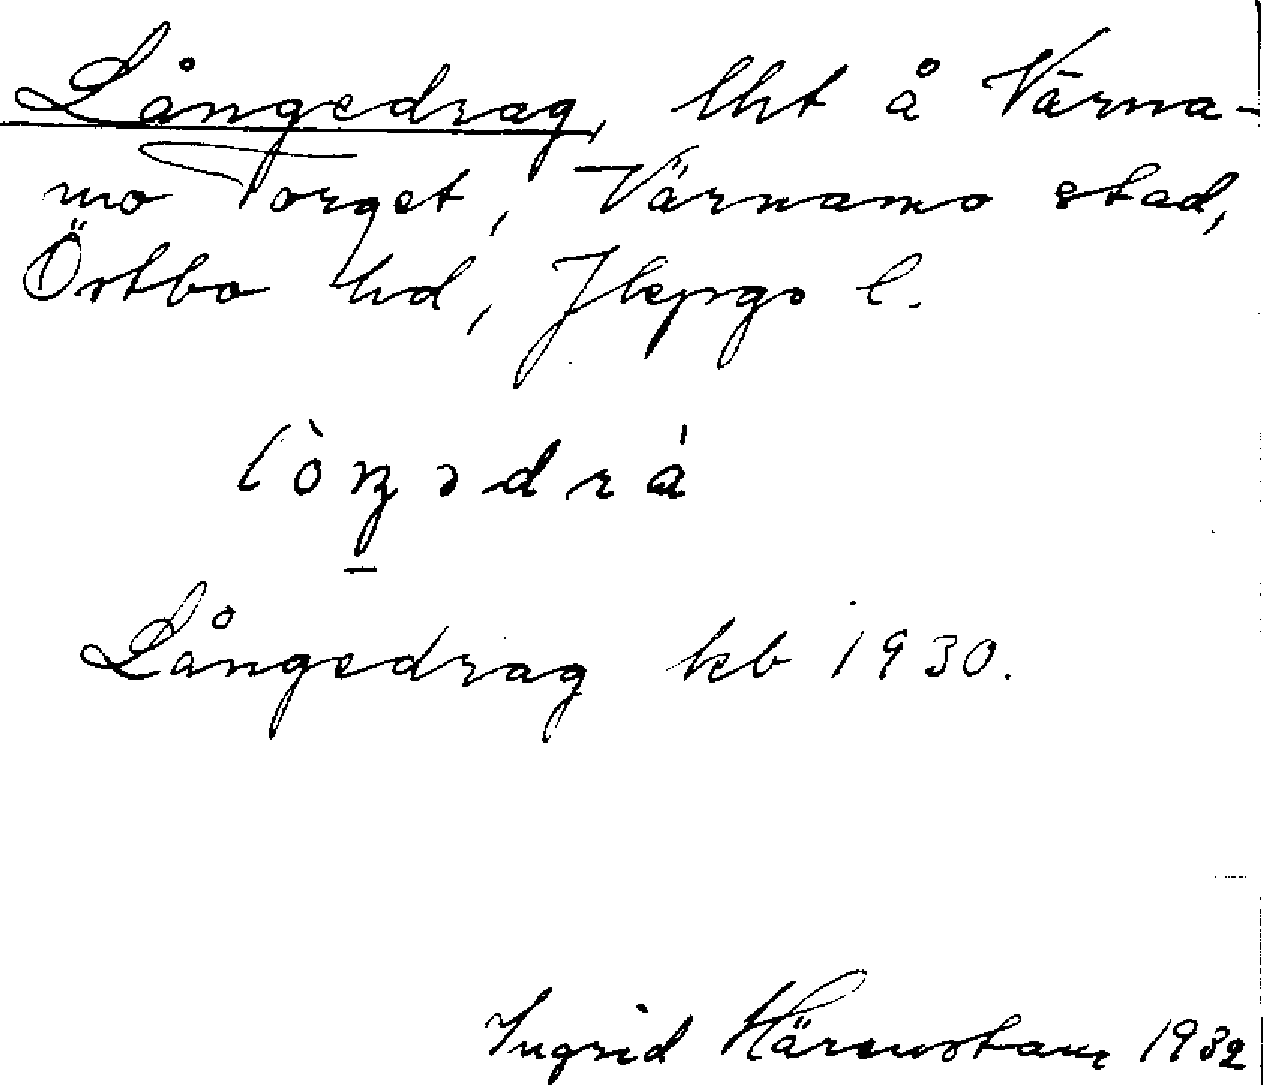 Långedrag, lht å Värna-
mo Torget, Värnamo stad,
Östbo hd, Jkpgs l.
lòŋədrá
Långedrag kb 1930.
Ingrid 1932